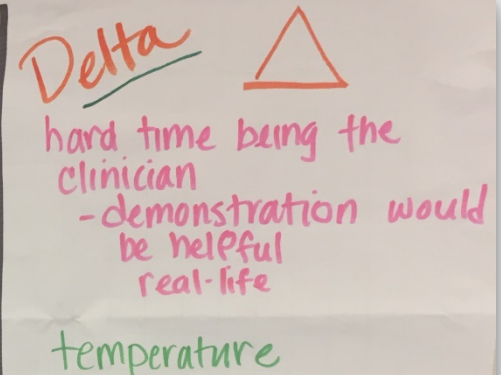 Delta
hard time being the
clinician
-demonstration would
be helpful
real-life
temperature